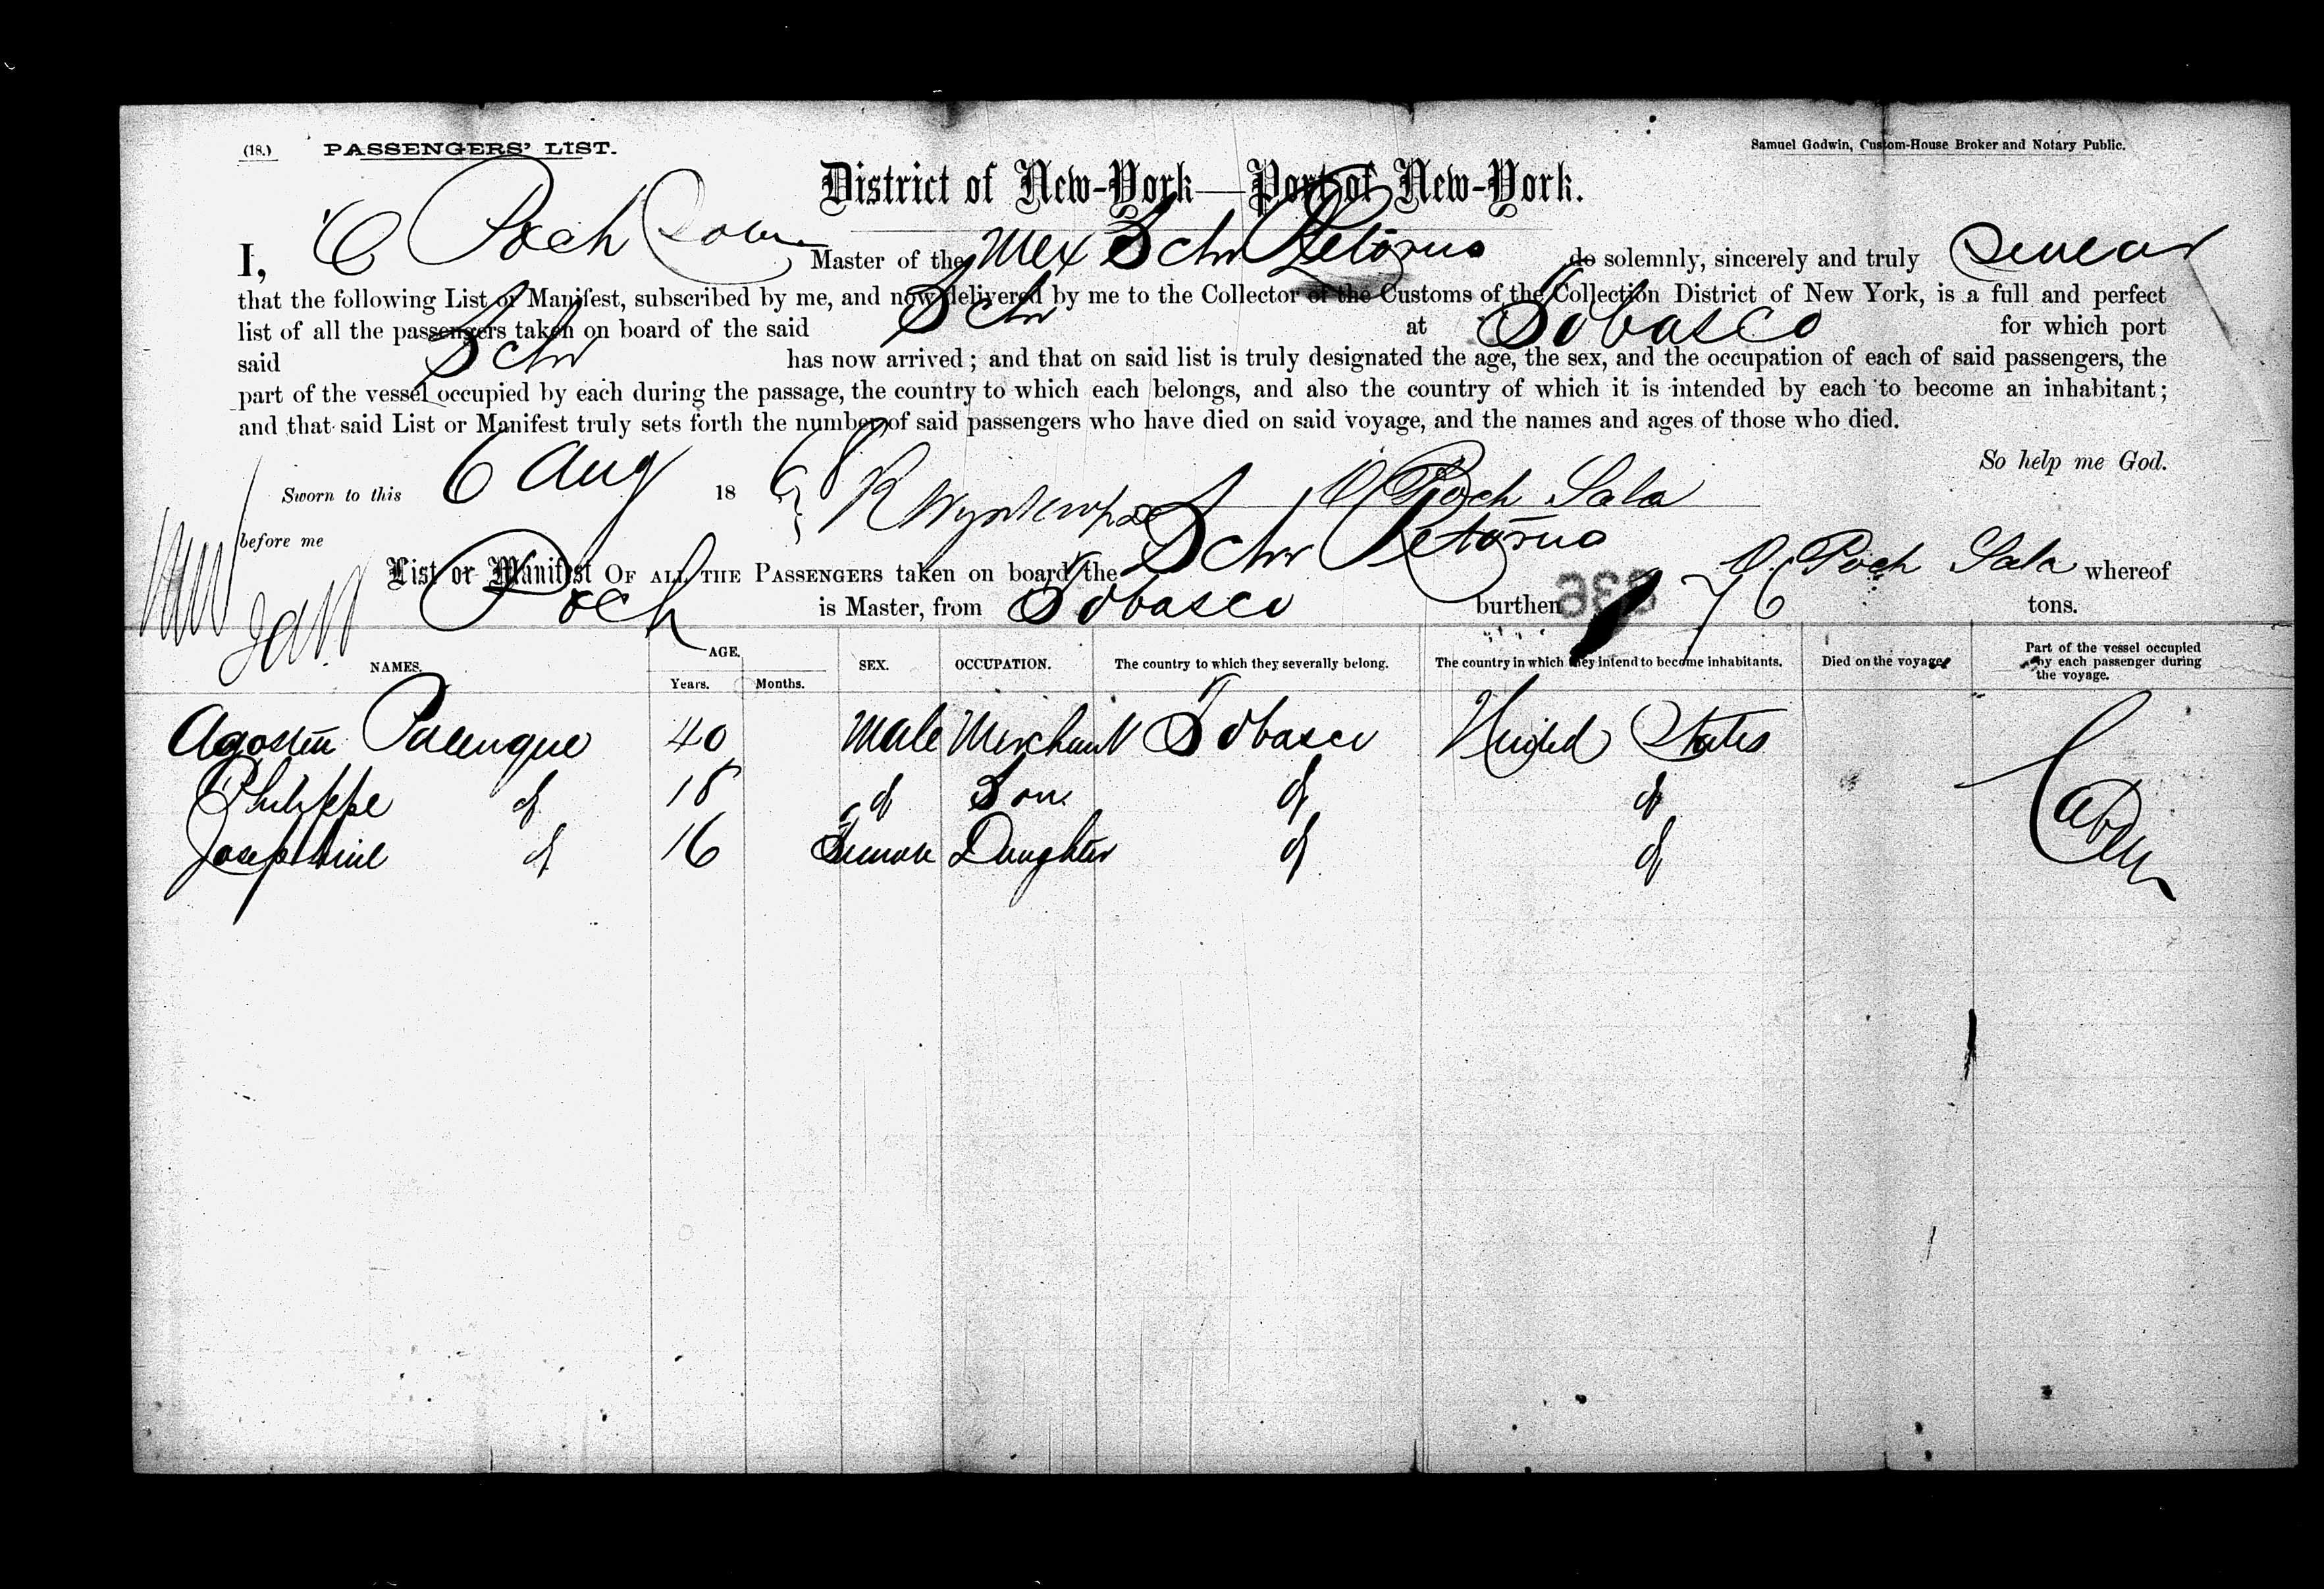 (18.) PASSENGERS' LIST. Samuel Godwin, Custom-House Broker and Notary Public.
District of New-York—Port of New-York.
I, Poch Master of the Mex Schr Retorno do solemnly, sincerely and truly swear
that the following List or Manifest, subscribed by me, and now delivered by me to the Collector of the Customs of the Collection District of New York, is a full and perfect
list of all the passengers taken on board of the said Schr at Tobasco for which port
said Schr has now arrived; and that on said list is truly designated the age, the sex, and the occupation of each of said passengers, the
part of the vessel occupied by each during the passage, the country to which each belongs, and also the country of which it is intended by each to become an inhabitant;
and that said List or Manifest truly sets forth the number of said passengers who have died on said voyage, and the names and ages of those who died.
So help me God.
Sworn to this 6 Aug 1868 Poch Sala
before me
List or Manifest OF ALL THE PASSENGERS taken on board the Schr Retorno Poch Sala whereof
Poch is Master, from Tobasco burthen 76 tons.
NAMES. AGE. SEX. OCCUPATION. The country to which they severally belong. The country in which they intend to become inhabitants. Died on the voyage. Part of the vessel occupied by each passenger during the voyage.
Years. Months.
Agostin Palenque 40 Male Merchant Tobasco United States Cabin
Philippe do 18 do Son do do
Josephine do 16 Female Daughter do do